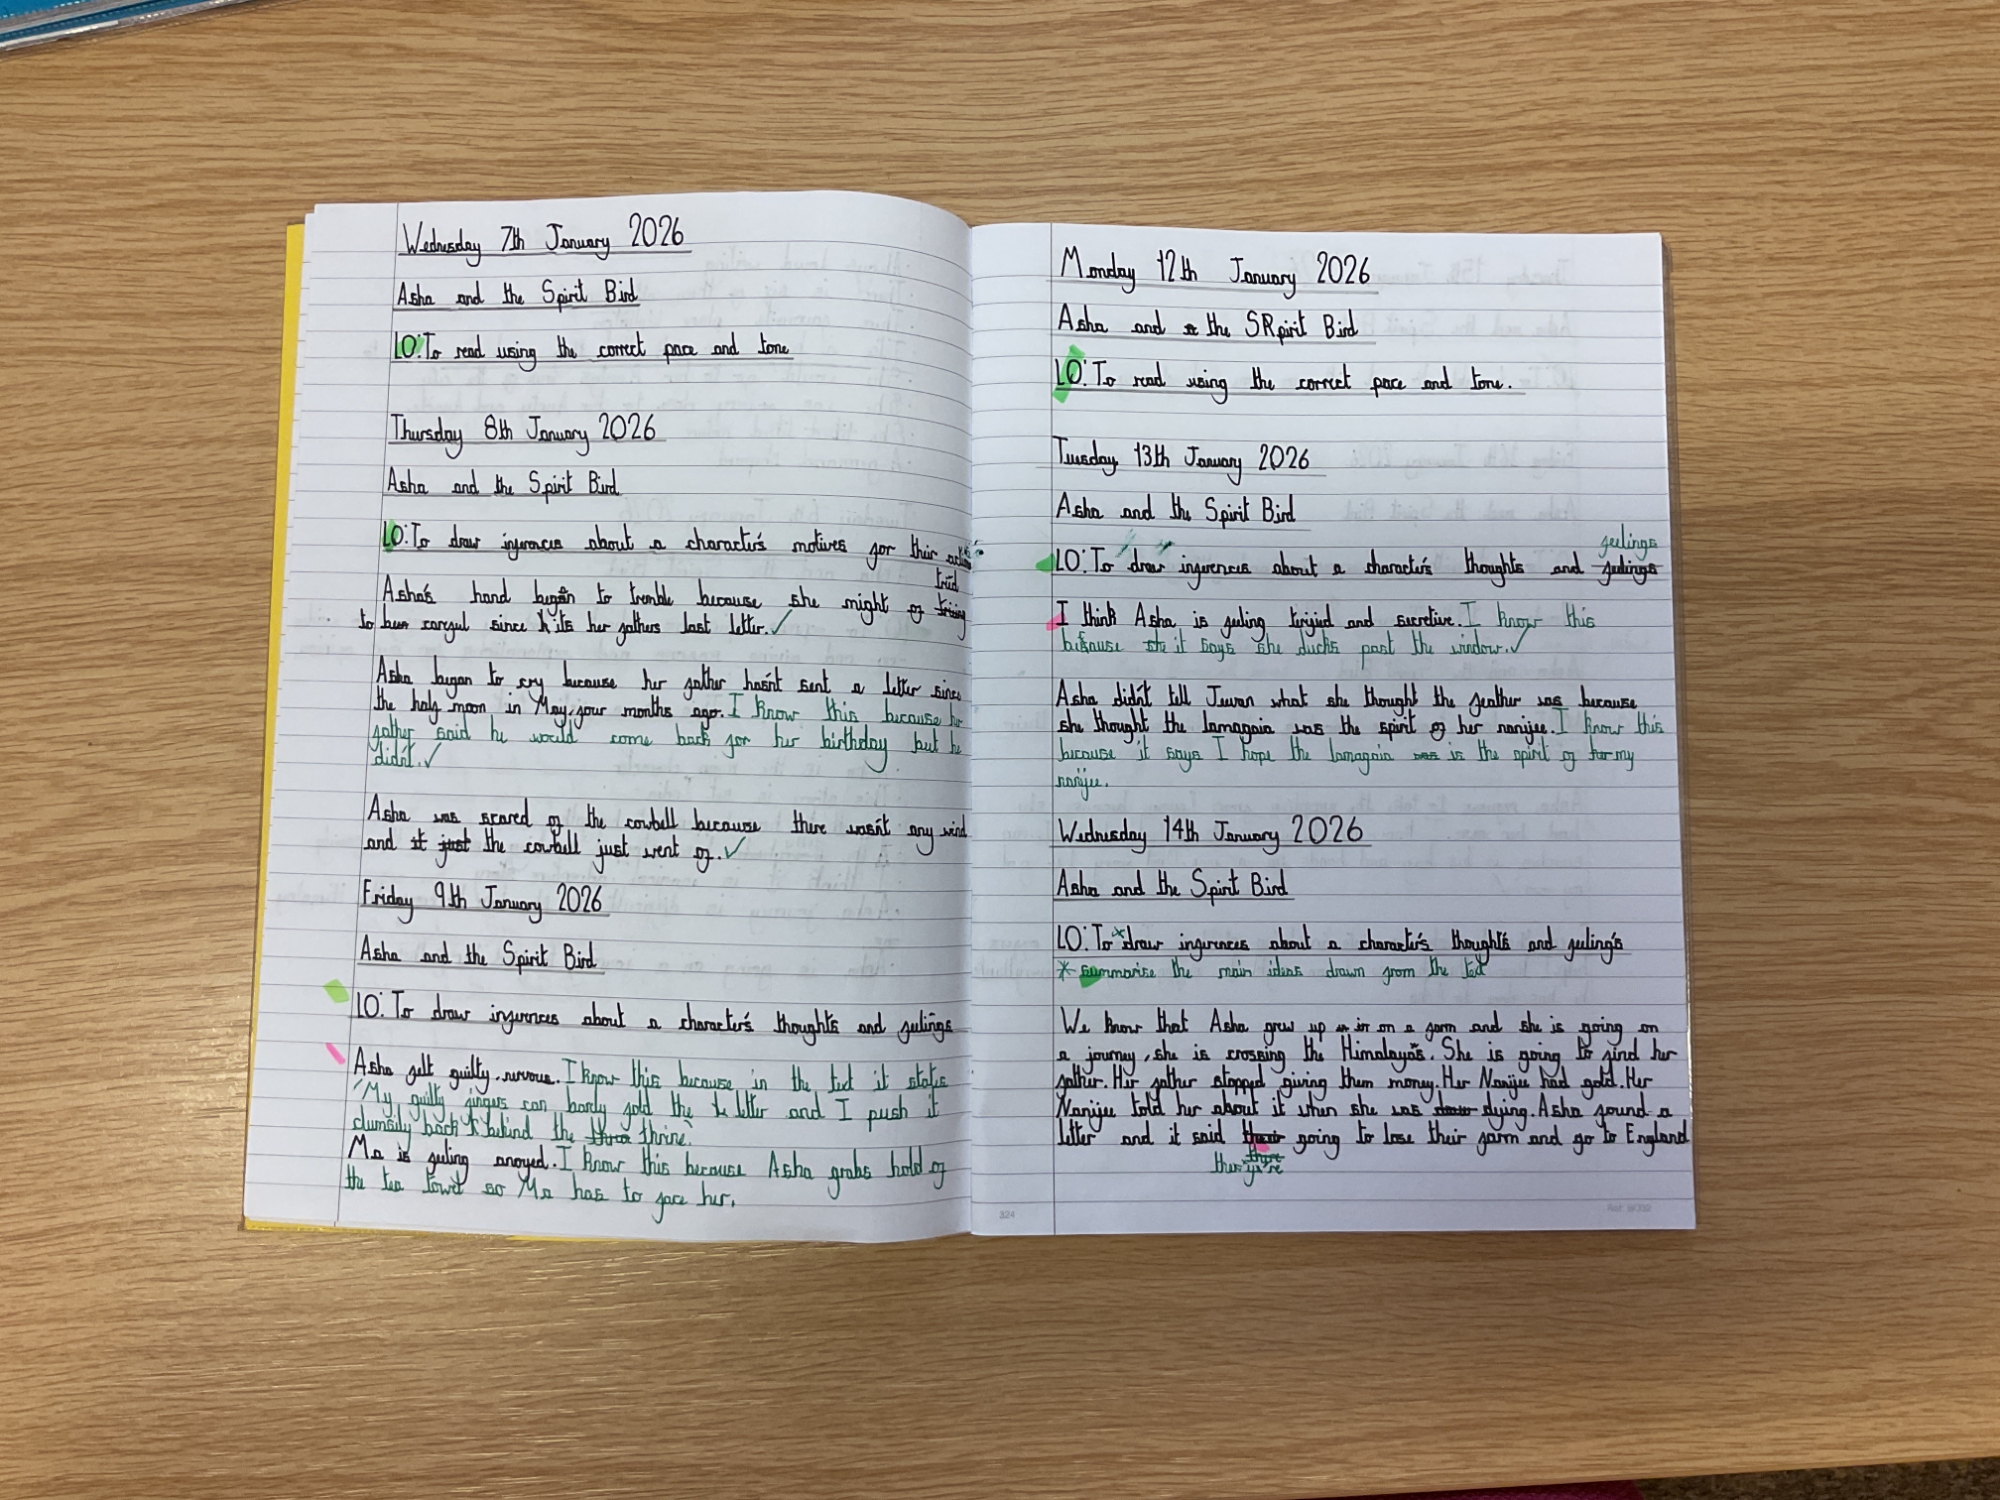 Wednesday 7th January 2026
Asha and the Spirit Bird
LO: To read using the correct pace and tone
Thursday 8th January 2026
Asha and the Spirit Bird
LO: To draw inferences about a character's motives for their
tried
Asha's hand began to tremble because she might of
to careful since its her fathers last letter.
Asha began to cry because her father hasn't sent a letter since
the half moon in May, four months ago. I know this because her
father said he would come back for her birthday but he
didn't.
Asha was scared of the cowbell because there wasn't any wind
and it just the cowbell just went of.
Friday 9th January 2026
Asha and the Spirit Bird
LO: To draw inferences about a character's thoughts and feeling's
Asha felt guilty, nervous. I know this because in the text it states
"My guilty fingers can barly fold the letter and I push it
clumsily back behind the thrine."
Ma is feeling anoyed. I know this because Asha grabs hold of
the tea towel so Ma has to face her.
Monday 12th January 2026
Asha and the SRpirit Bird
LO: To read using the correct pace and tone.
Tuesday 13th January 2026
Asha and the Spirit Bird
feelings
LO: To draw inferences about a character's thoughts and feelings
I think Asha is feeling terrified and secretive. I know this
because it says she ducks past the window.
Asha didn't tell Jeevan what she thought the feather was because
she thought the lamagaia was the spirit of her nanijee. I know this
because it says I hope the lamagaia was is the spirit of her my
nanijee.
Wednesday 14th January 2026
Asha and the Spirit Bird
LO: To * draw inferences about a character's thoughts and feeling's
* summarise the main ideas drawn from the text
We know that Asha grew up in on a farm and she is going on
a journey, she is crossing the Himalayas. She is going to find her
father. Her father stopped giving them money. Her Nanijee had gold. Her
Nanijee told her about it when she was dying. Asha found a
letter and it said their going to lose their farm and go to England
there
they're
324